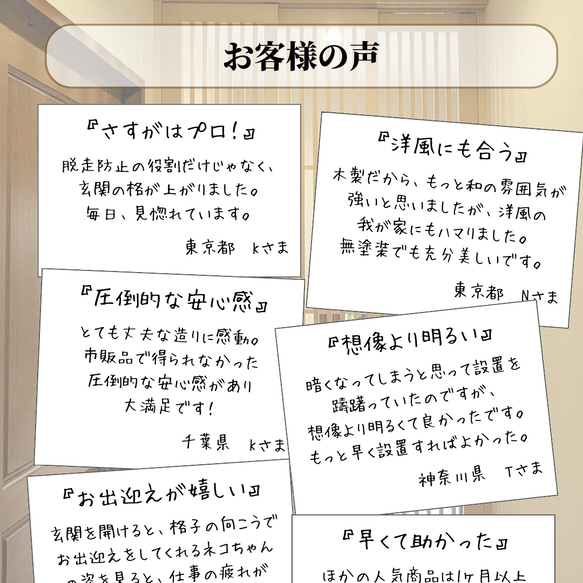 お客様の声
『さすがはプロ!』
脱走防止の役割だけじゃなく、
玄関の格が上がりました。
毎日、見惚れています。
東京都　Kさま
『洋風にも合う』
木製だから、もっと和の雰囲気が
強いと思いましたが、洋風の
我が家にもハマりました。
無塗装でも充分美しいです。
東京都　Nさま
『圧倒的な安心感』
とても丈夫な造りに感動。
市販品で得られなかった
圧倒的な安心感があり
大満足です!
千葉県　Kさま
『想像より明るい』
暗くなってしまうと思って設置を
躊躇っていたのですが、
想像より明るくて良かったです。
もっと早く設置すればよかった。
神奈川県　Tさま
『お出迎えが嬉しい』
玄関を開けると、格子の向こうで
お出迎えをしてくれるネコちゃん
の姿を見ると、仕事の疲れが
『早くて助かった』
ほかの人気商品は1ヶ月以上